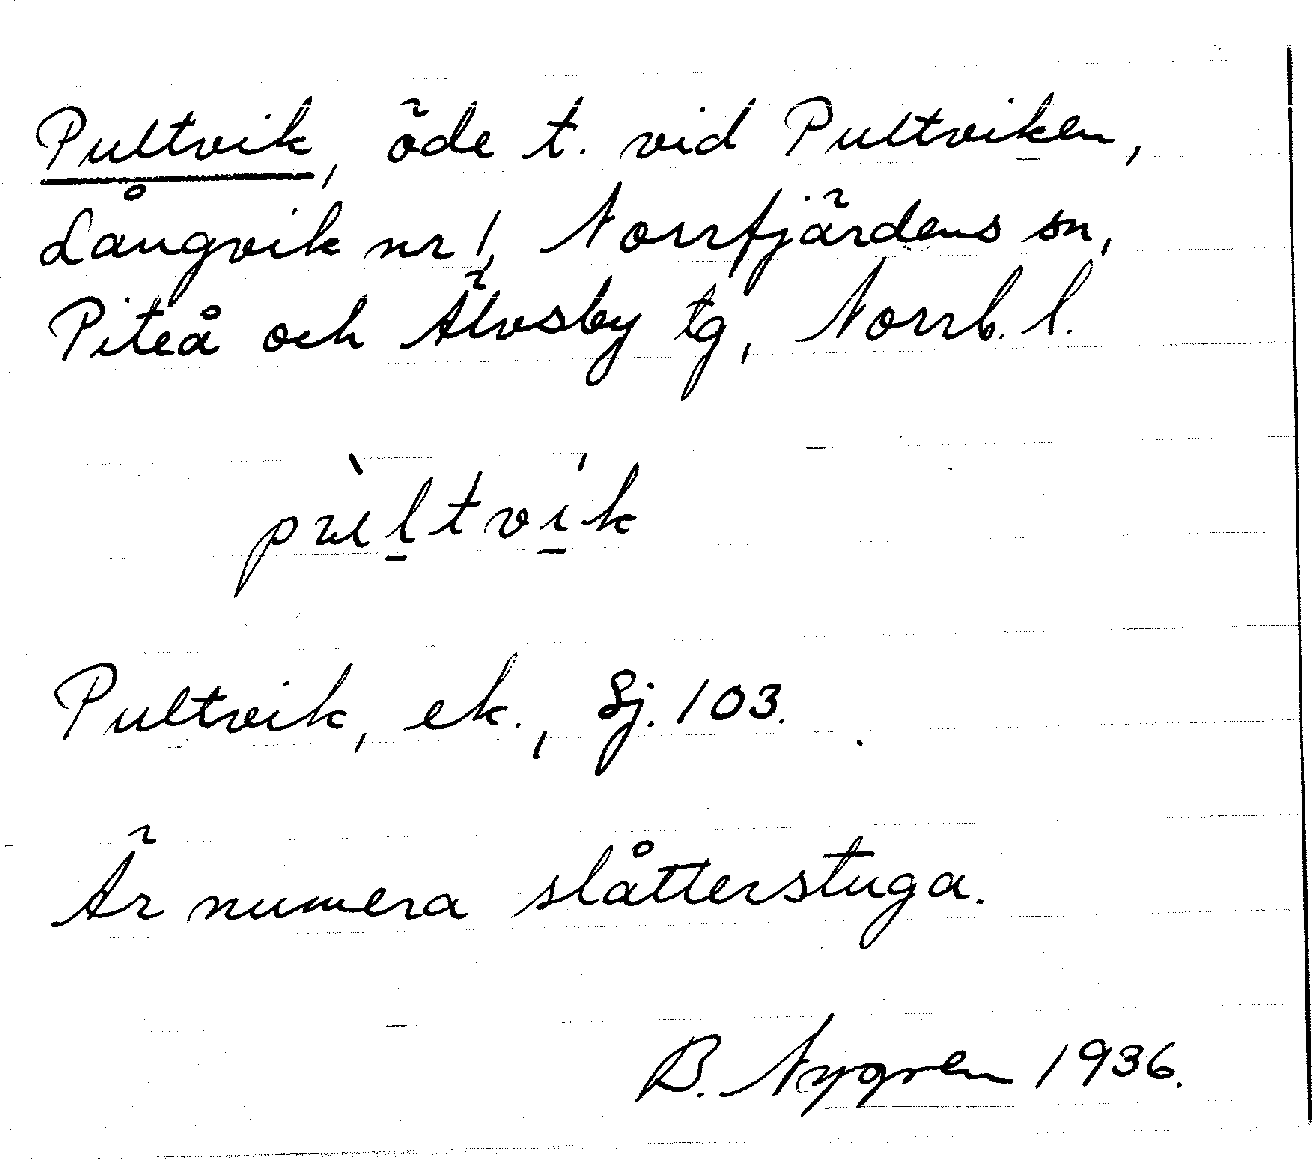 Pultvik, öde t. vid Pultviken,
Långvik nr 1, Norrfjärdens sn,
Piteå och Älvsby tg, Norrb. l.
pùḻtví̱k
Pultvik, ek., Sj. 103.
Är numera slåtterstuga.
B. Nygren 1936.